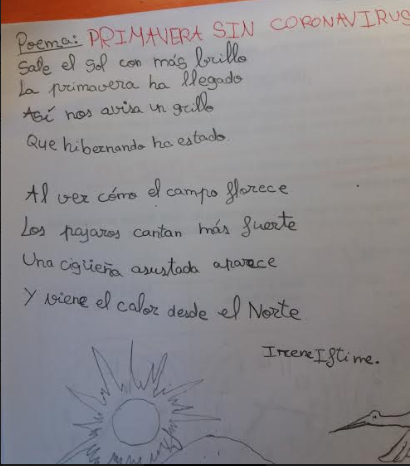 Poema: PRIMAVERA SIN CORONAVIRUS
Sale el sol con más brillo
La primavera ha llegado
Así nos avisa un grillo
Que hibernando ha estado
Al ver cómo el campo florece
Los pajaros cantan más fuerte
Una cigüeña asustada aparece
Y viene el calor desde el Norte
Irene Iftime.